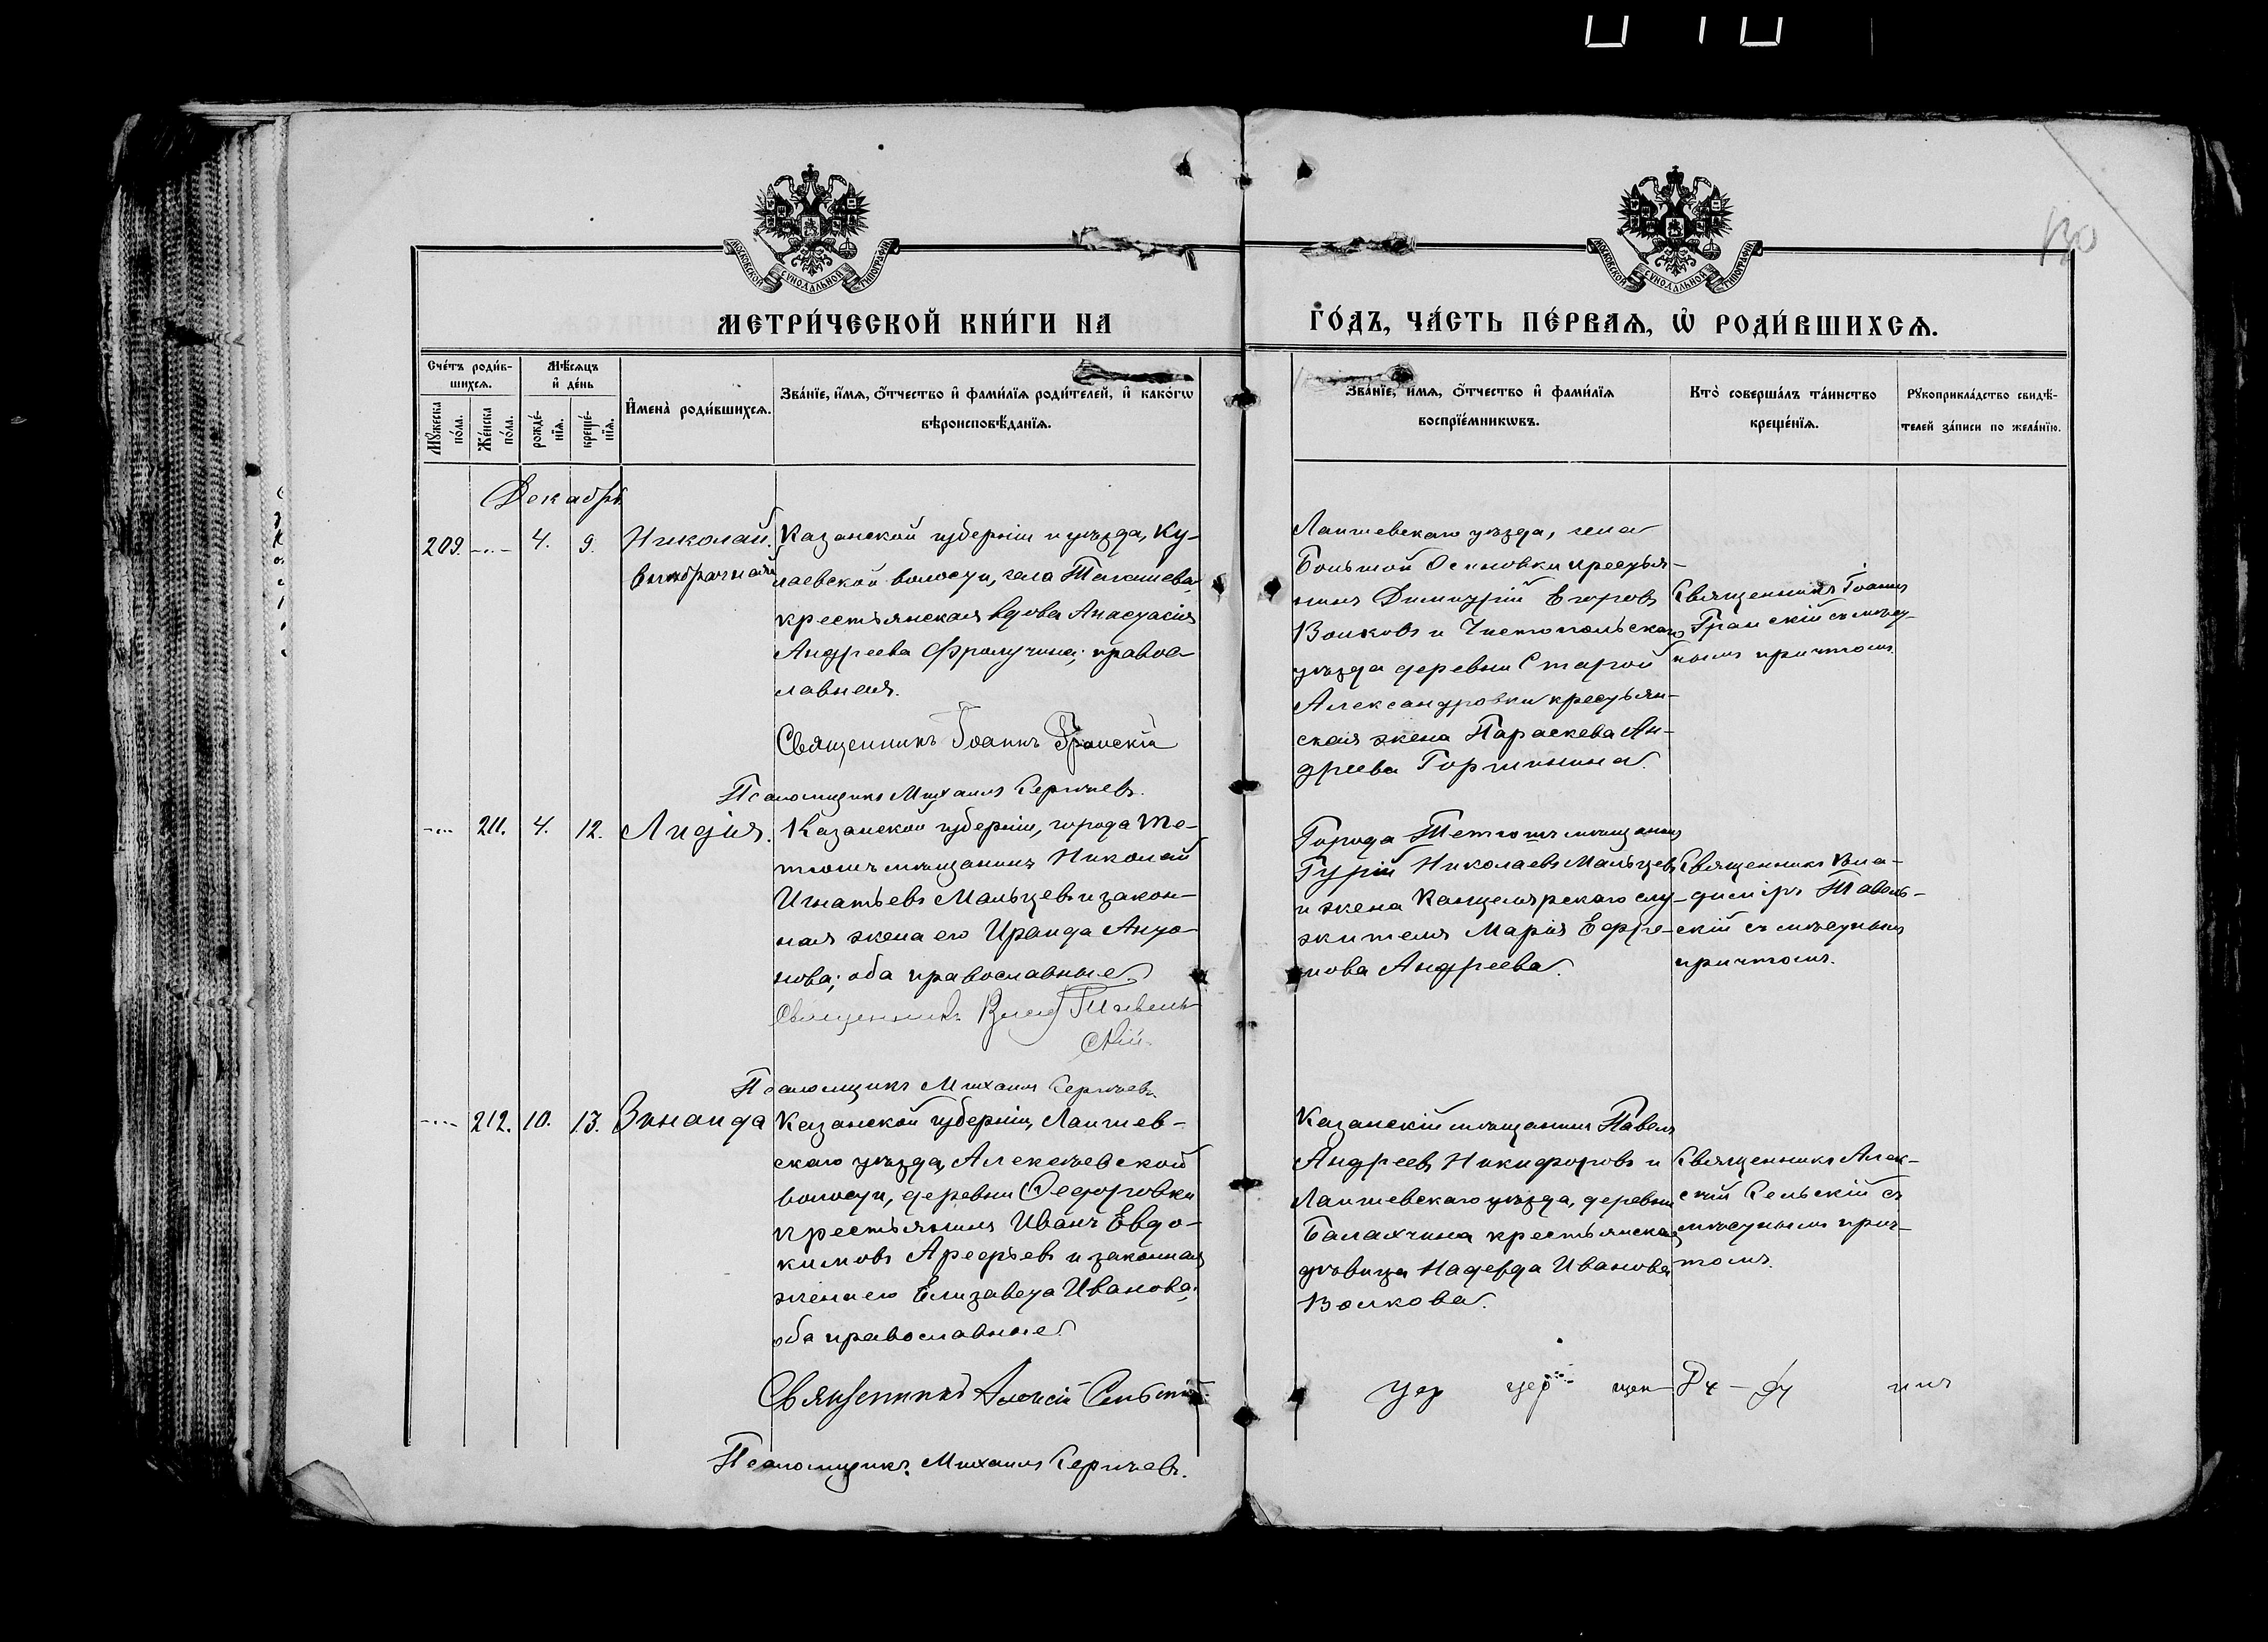 МОСКОВСКОЙ СѴНОДАЛЬНОЙ ТИПОГРАФІИ
МОСКОВСКОЙ СѴНОДАЛЬНОЙ ТИПОГРАФІИ
130
МЕТРИ́ЧЕСКОЙ КНИ́ГИ НА
ГО́ДЪ, ЧА́СТЬ ПЕ́РВАѦ, Ѽ РОДИ́ВШИХСѦ.
Сче́тъ роди́в-
шихсѧ.
Мꙋжеска по́ла.
Же́нска по́ла.
Мѣ́сѧцъ и҆ де́нь
рожде́-
нїѧ.
креще́-
нїѧ.
И҆мена̀ роди́вшихсѧ.
Зва́нїе, и҆́мѧ, ѻ҆́тчество и҆ фами́лїѧ роди́телей, и҆ како́гѡ
вѣроисповѣ́данїѧ.
Зва́нїе, и҆́мѧ, ѻ҆́тчество и҆ фами́лїѧ
воспрїе́мникѡвъ.
Кто̀ соверша́лъ та́инство
креще́нїѧ.
Рꙋкоприкла́дство свидѣ́-
телей за́писи по жела́нїю.
Декабрь
209. 4. 9. Николай
внѣбрачный
Казанской губерніи и уѣзда, Ку-
лаевской волости, села
крестьянская вдова Анастасія
Андреева Фролучина; правос-
лавная.
Священникъ Іоаннъ Гранскій
Псаломщикъ Михаилъ Сергѣевъ.
Лаишевскаго уѣзда, села
Большой Осиновки крестья-
нинъ Димитрій Егоровъ
Волковъ и Чистопольскаго
уѣзда деревни Старой
Александровки крестьян-
ская жена Параскева Ан-
дреева
Священникъ Іоаннъ
Гранскій съ мѣст-
нымъ причтомъ.
211. 4. 12. Лидія.
Казанской губерніи, города Те-
тюшъ мѣщанинъ Николай
Игнатьевъ Мальцевъ и закон-
ная жена его Ираида Анто-
нова; оба православные
Священникъ Влад. Павель-
скій
Псаломщикъ Михаилъ Сергѣевъ.
Города Тетюшъ мѣщанинъ
Гурій Николаевъ Мальцевъ
и жена Канцелярскаго слу-
жителя Марія Ефре-
мова Андреева.
Священникъ Вла-
димиръ Павель-
скій съ мѣстнымъ
причтомъ.
212. 10. 13. Зинаида
Казанской губерніи, Лаишев-
скаго уѣзда, Алексѣевской
волости, деревни Ѳедоровки
крестьянинъ Иванъ Евдо-
кимовъ Арефьевъ и законная
жена его Елизавета Иванова;
оба православные.
Священникъ Алексій Сельскій
Псаломщикъ Михаилъ Сергѣевъ.
Казанскій мѣщанинъ Павелъ
Андреевъ Никифоровъ и
Лаишевскаго уѣзда, деревни
Балахчина крестьянская
дѣвица Надежда Иванова
Волкова.
Священникъ Алек-
сѣй Сельскій съ
мѣстнымъ прич-
томъ.